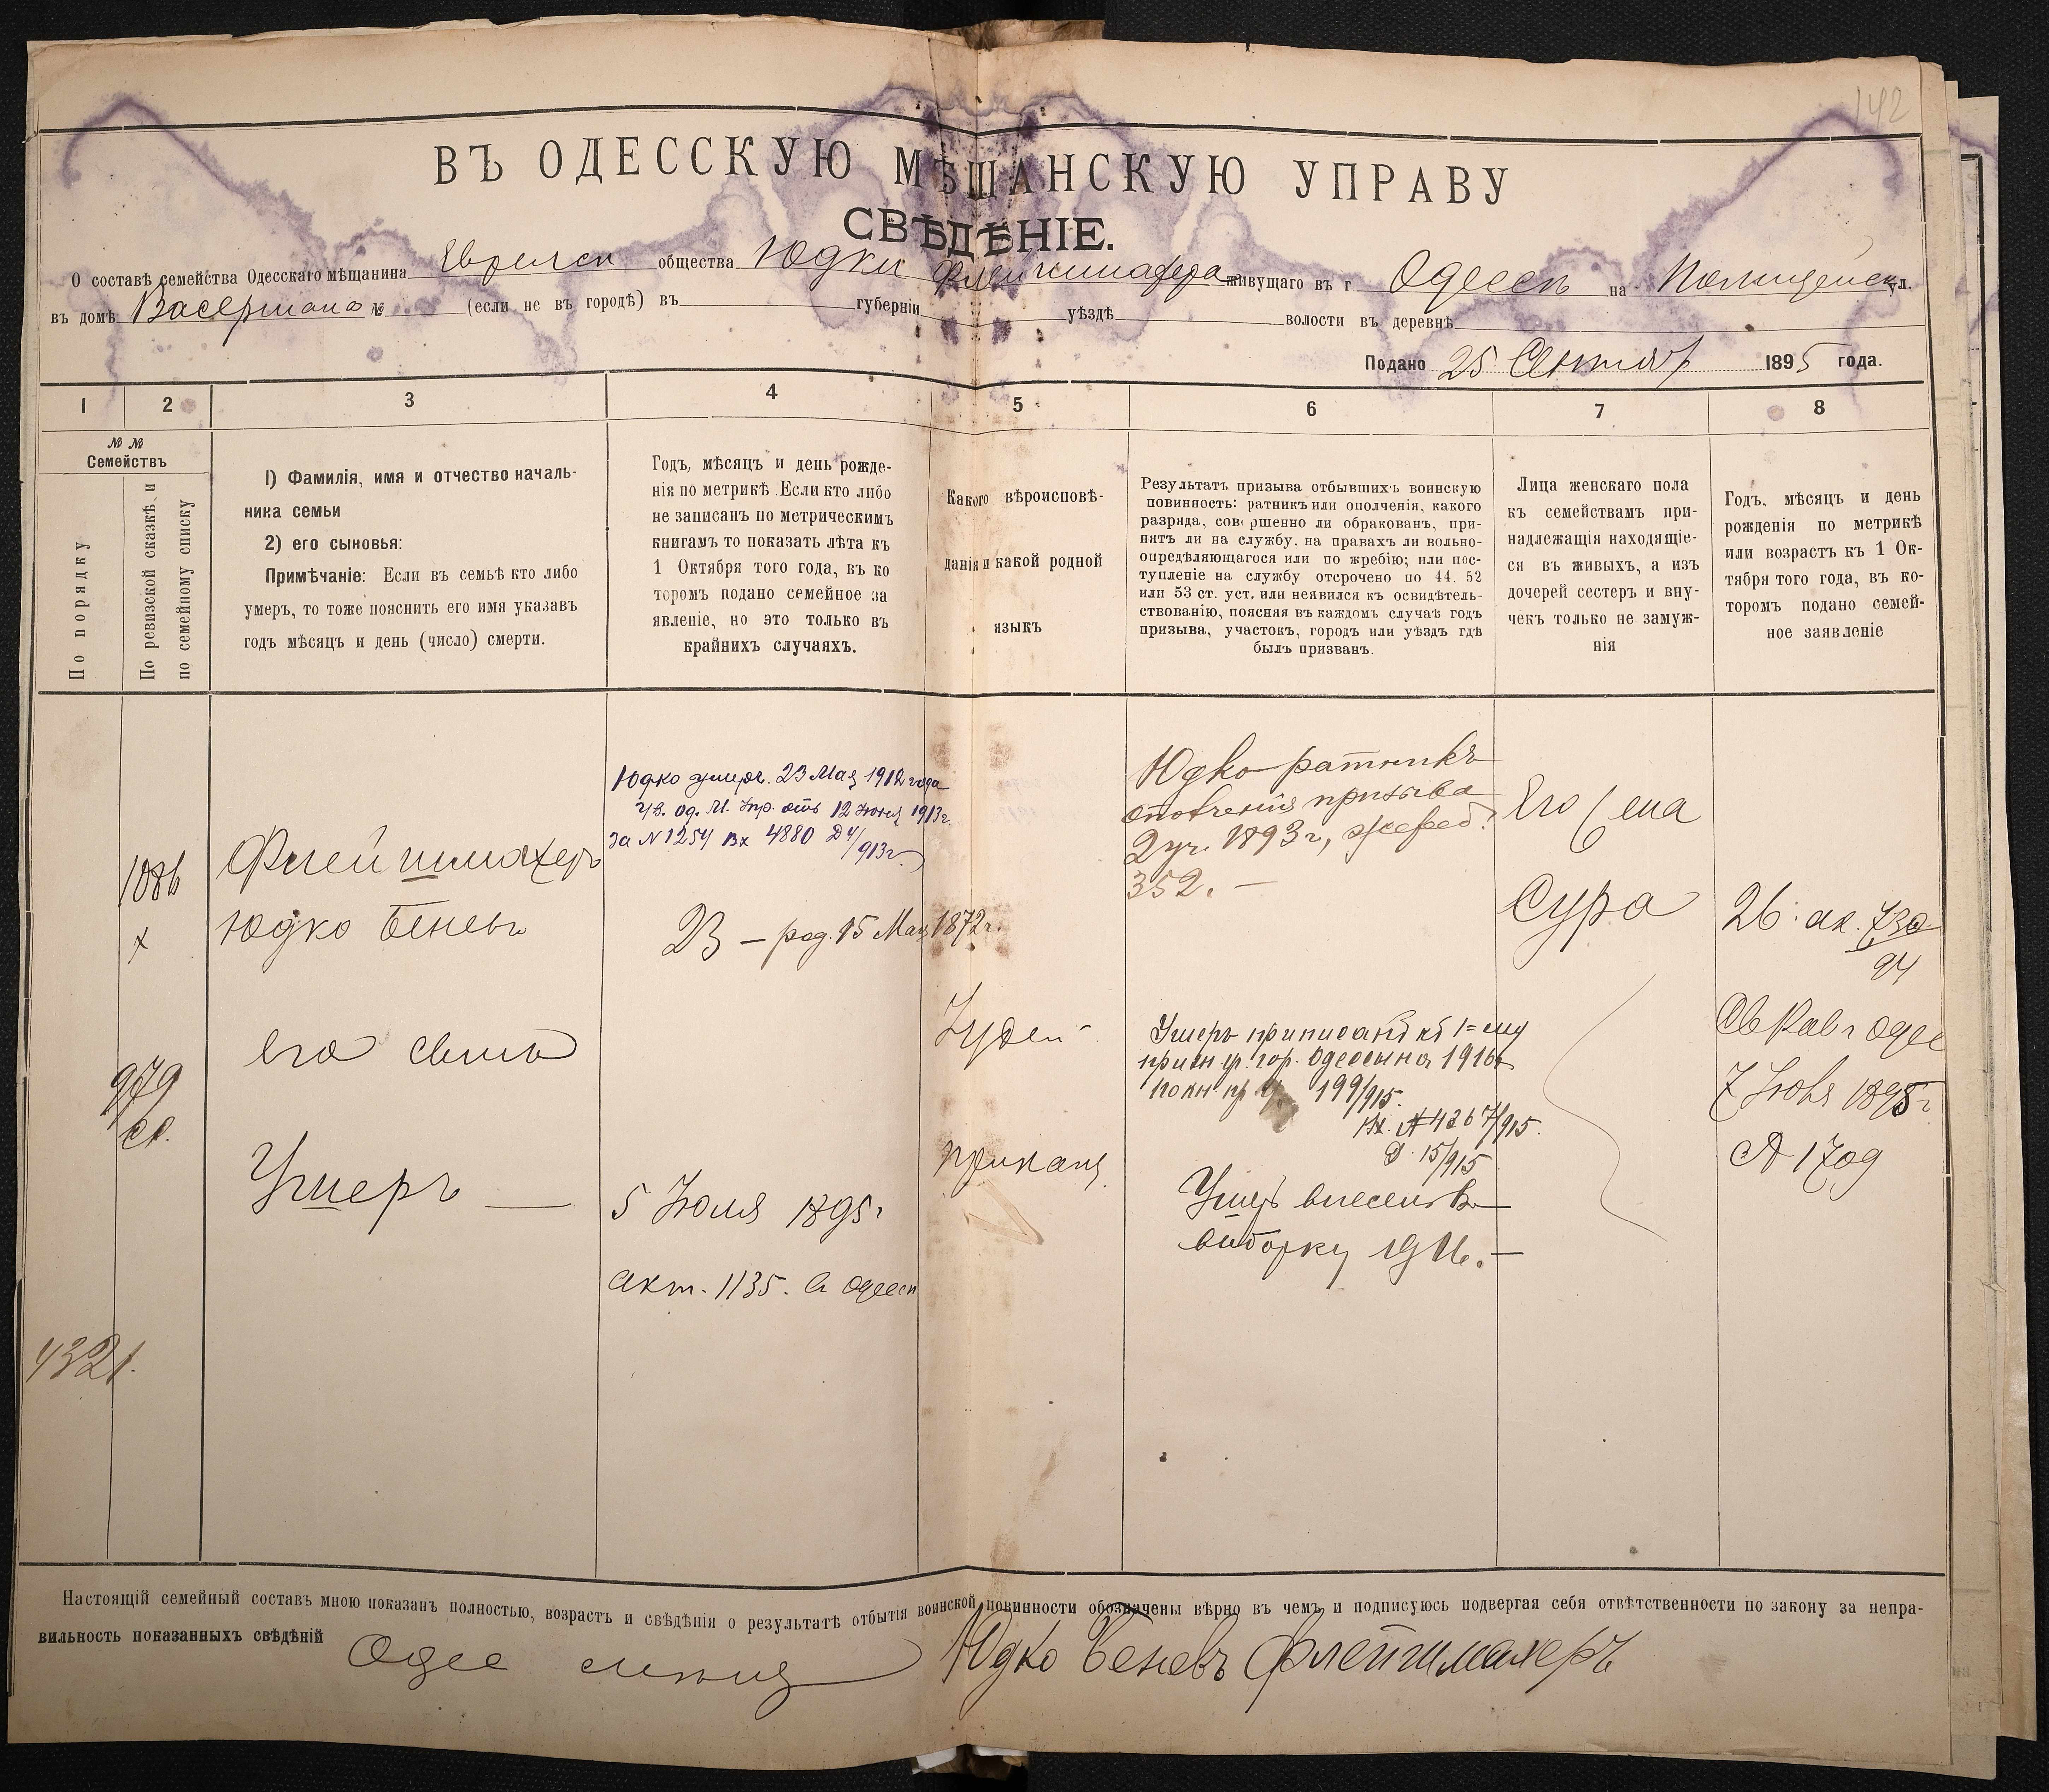 142
ВЪ ОДЕССКУЮ МѢЩАНСКУЮ УПРАВУ
СВѢДѢНІЕ.
О составѣ семейства Одесскаго мѣщанина Еврейск общества Юдки Флейшмахера живущаго въ г Одессѣ на Полицейск ул.
въ домѣ Васермана № (если не въ городѣ) въ губерніи уѣздѣ волости въ деревнѣ
Подано 25 Сентяб 1895 года.
1 2 3 4 5 6 7 8
№ №
Семействъ
По порядку
По ревизской сказкѣ и
по семейному списку
1) Фамилія, имя и отчество началь-
ника семьи
2) его сыновья:
Примѣчаніе: Если въ семьѣ кто либо
умеръ, то тоже пояснить его имя указавъ
годъ мѣсяцъ и день (число) смерти.
Годъ, мѣсяцъ и день рожде-
нія по метрикѣ. Если кто либо
не записанъ по метрическимъ
книгамъ то показать лѣта къ
1 Октября того года, въ ко
торомъ подано семейное за
явленіе, но это только въ
крайнихъ случаяхъ.
Какого вѣроисповѣ-
данія и какой родной
языкъ
Результатъ призыва отбывшихъ воинскую
повинность: ратникъ или ополченія, какого
разряда, совершенно ли обракованъ, при-
нятъ ли на службу, на правахъ ли вольно-
опредѣляющагося или по жребію; или пос-
тупленіе на службу отсрочено по 44, 52
или 53 ст. уст. или неявился къ освидѣтель-
ствованію, поясняя въ каждомъ случаѣ годъ
призыва, участокъ, городъ или уѣздъ гдѣ
былъ призванъ.
Лица женскаго пола
къ семействамъ при-
надлежащія находящіе-
ся въ живыхъ, а изъ
дочерей сестеръ и вну-
чекъ только не замуж-
нія
Годъ, мѣсяцъ и день
рожденія по метрикѣ
или возрастъ къ 1 Ок-
тября того года, въ ко-
торомъ подано семей-
ное заявленіе
1086
х
Флейшмахеръ
Юдко Беневъ
Юдко умеръ. 23 Мая 1912 года
Ув. Од. М. Упр. отъ 12 Іюня 1913г.
за N 1254 Вх 4880 Д 4/913г.
23 – род. 15 Мая 1872г.
Юдко ратникъ
ополченія призыва
2 уч. 1893 г, жереб.
352. –
Его жена
Сура
26: ак. 730
94
979
его сынъ
Ушеръ —
5 Іюля 1895г
акт. 1135. в Одессѣ
Іудей
Ушеръ приписанъ къ 1=му
призн. уч. гор. Одессы на 1916г
по кн пр уч. 199/915.
Вх. № 4267/915.
Д. 15/915
Ушеръ внесенъ въ
выборку 1916. –
7 1895г
1 год
4321.
Настоящій семейный составъ мною показанъ полностью, возрастъ и свѣдѣнія о результатѣ отбытія воинской повинности обозначены вѣрно въ чемъ и подписуюсь подвергая себя отвѣтственности по закону за непра-
вильность показанныхъ свѣдѣній Одес мѣщ Юдко Беневъ Флейшмахеръ